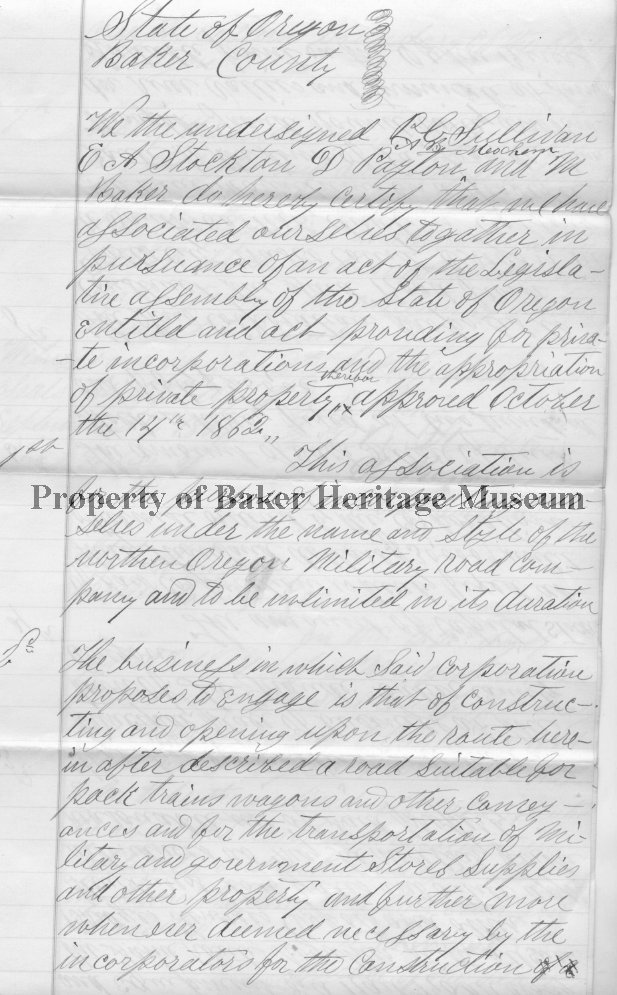 State of Oregon
Baker County
We the undersigned P C Sullivan
Meachem
E A Stockton D Payton and M
Baker do hereby certify that we have
associated ourselves togather in
pursuance of an act of the Legisla-
tive assembly of the State of Oregon
Entitled and act providing for priva-
-te incorporations and the appropriation
therebor
of private property approved October
the 14th 1862
1st
This association is
for the purpose of
Property of Baker Heritage Museum
selves under the name and Style of the
northen Oregon Military road com-
pany and to be unlimited in its duration
2nd
The business in which said corporation
proposes to Engage is that of construc-
ting and opening upon the route here-
in after described a road suitable for
pack trains wagons and other convey-
ances and for the transportation of Mi-
litary and government Stores Supplies
and other property and further more
when ever deemed necessary by the
incorporators for the Construction of